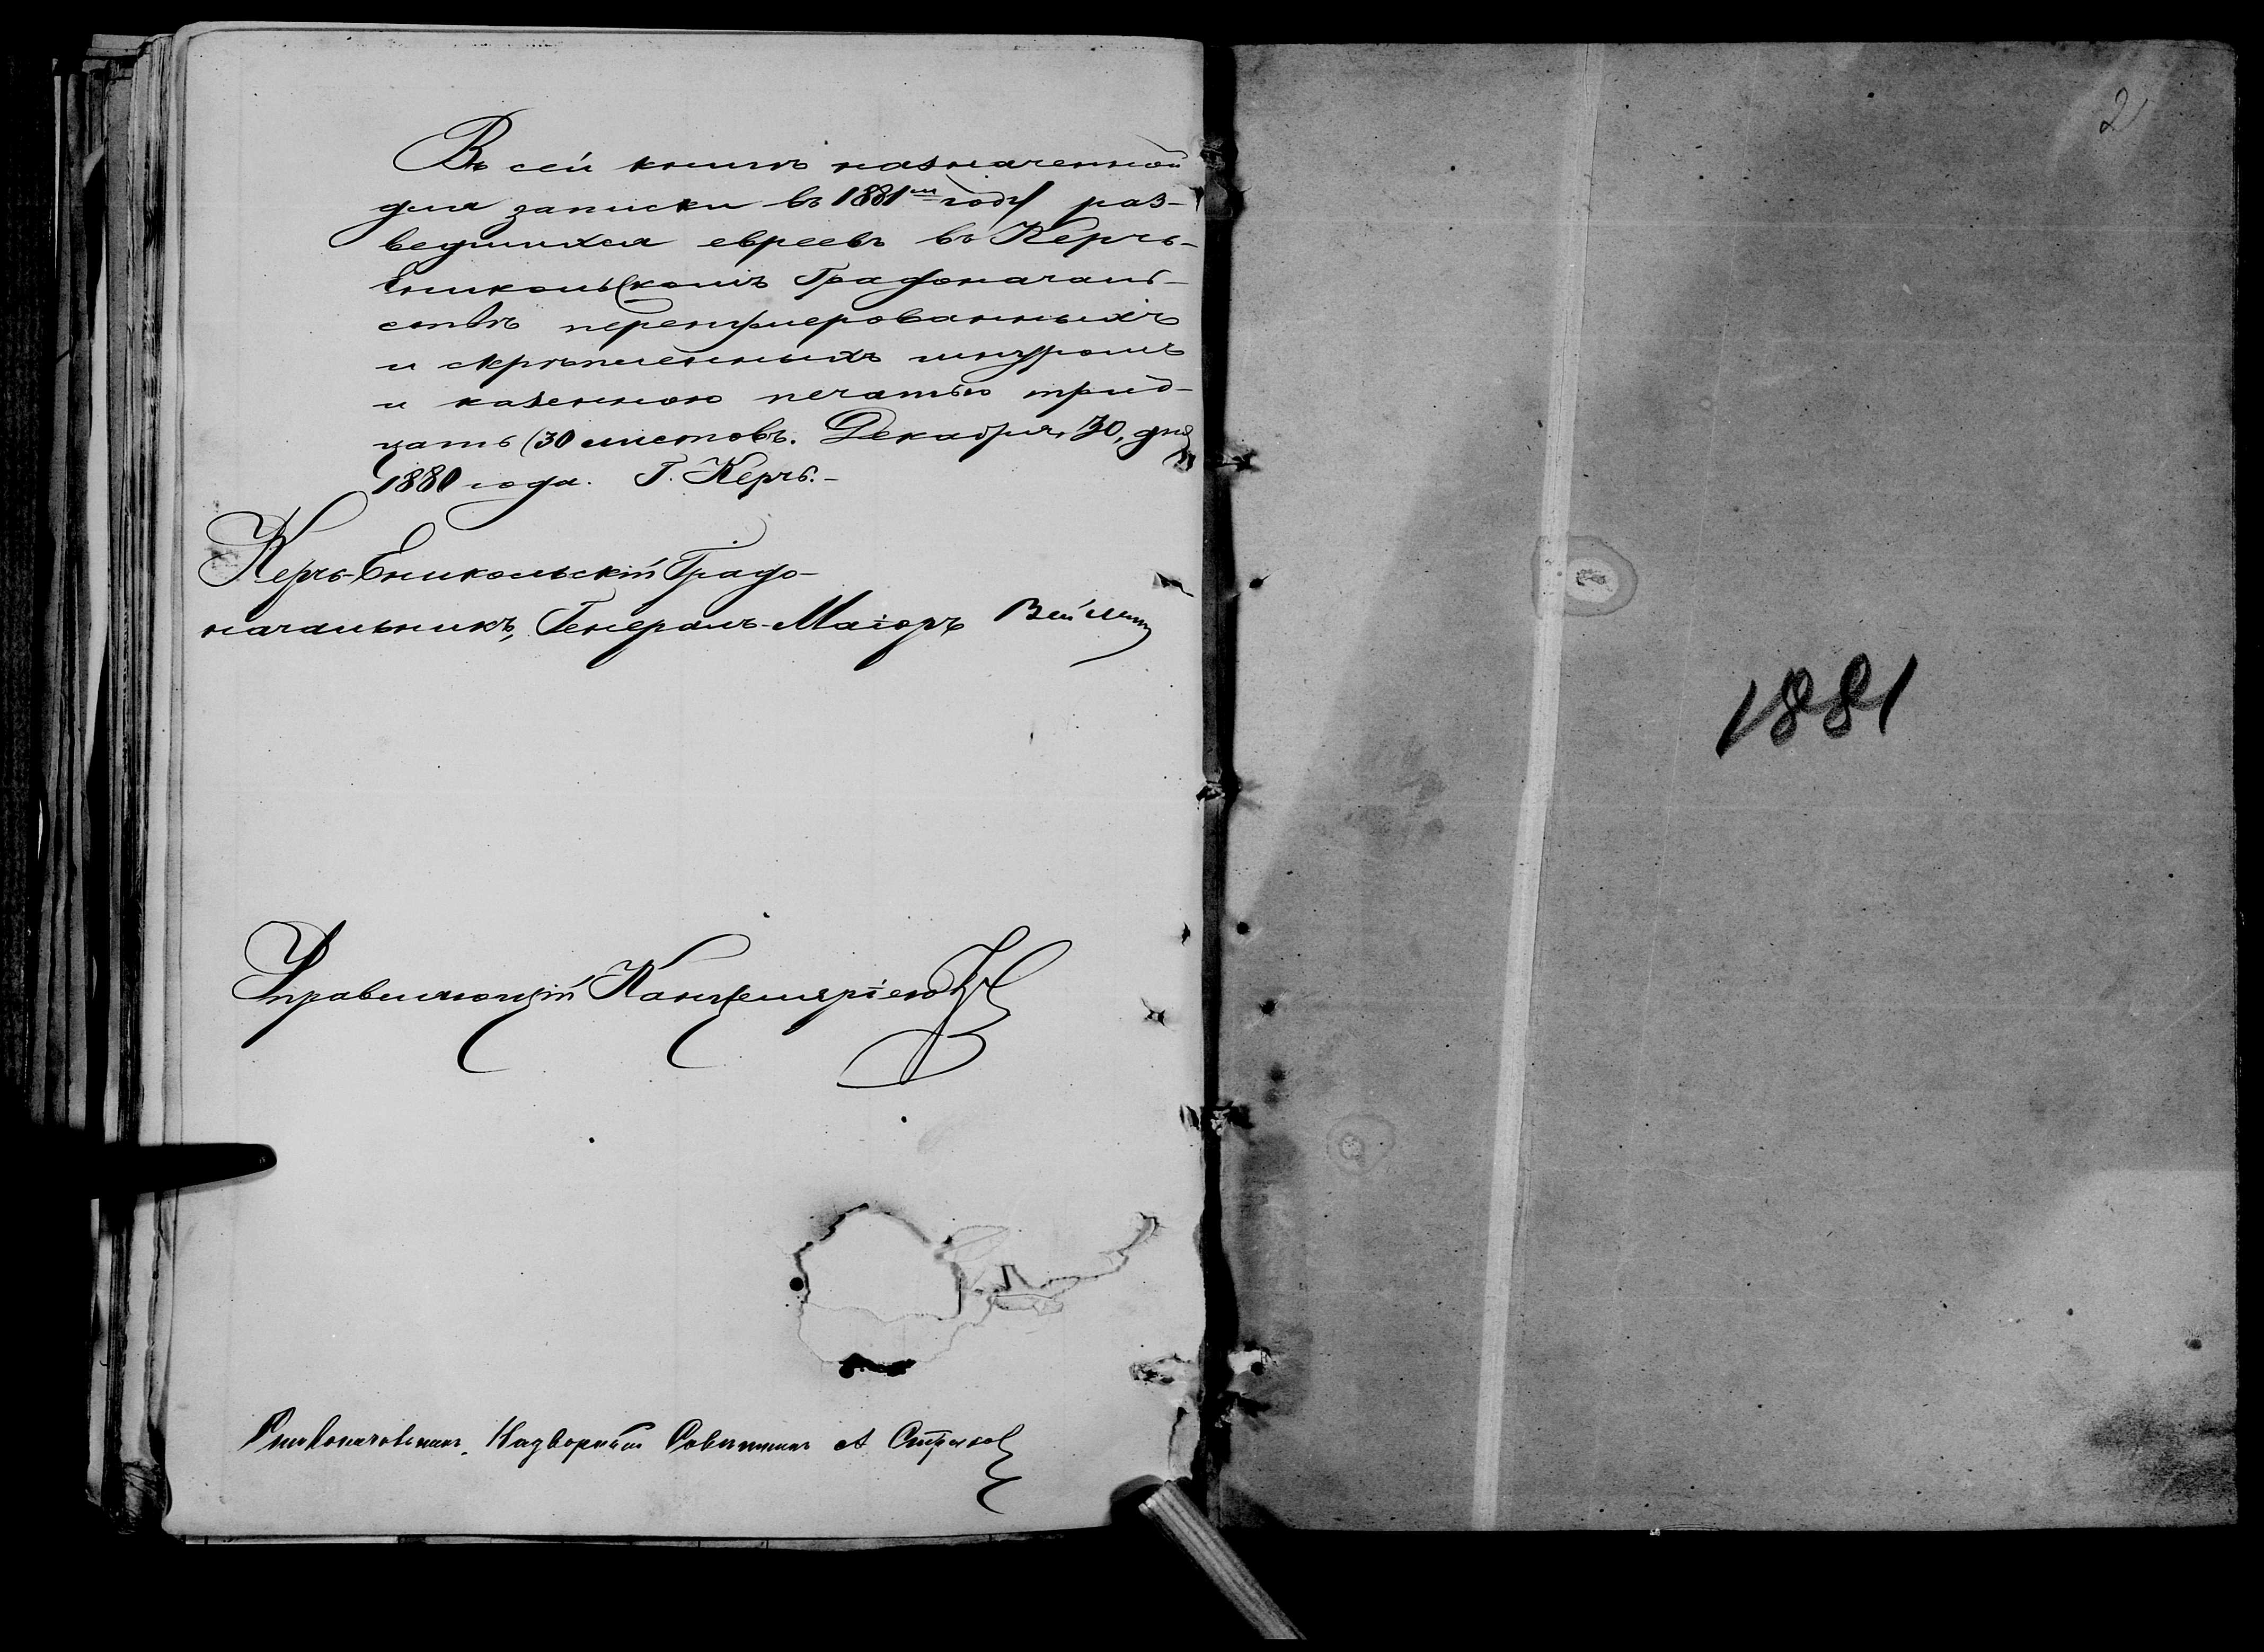 Въ сей книгѣ назначенной
для записки въ 1881ᵐ году раз-
ведшихся евреевъ въ Керчь-
Еникольскомъ Градоначаль-
ствѣ перенумерованныхъ
и скрѣпленныхъ шнуромъ
и казенною печатью трид-
цать (30 листовъ. Декабря, 30, дня
1880 года. Г. Керчь.-
Керчь-Еникольскій Градо-
начальникъ, Генералъ-Маіоръ
Управляющій Канцеляріею
Надворный Совѣтникъ А
2
1881